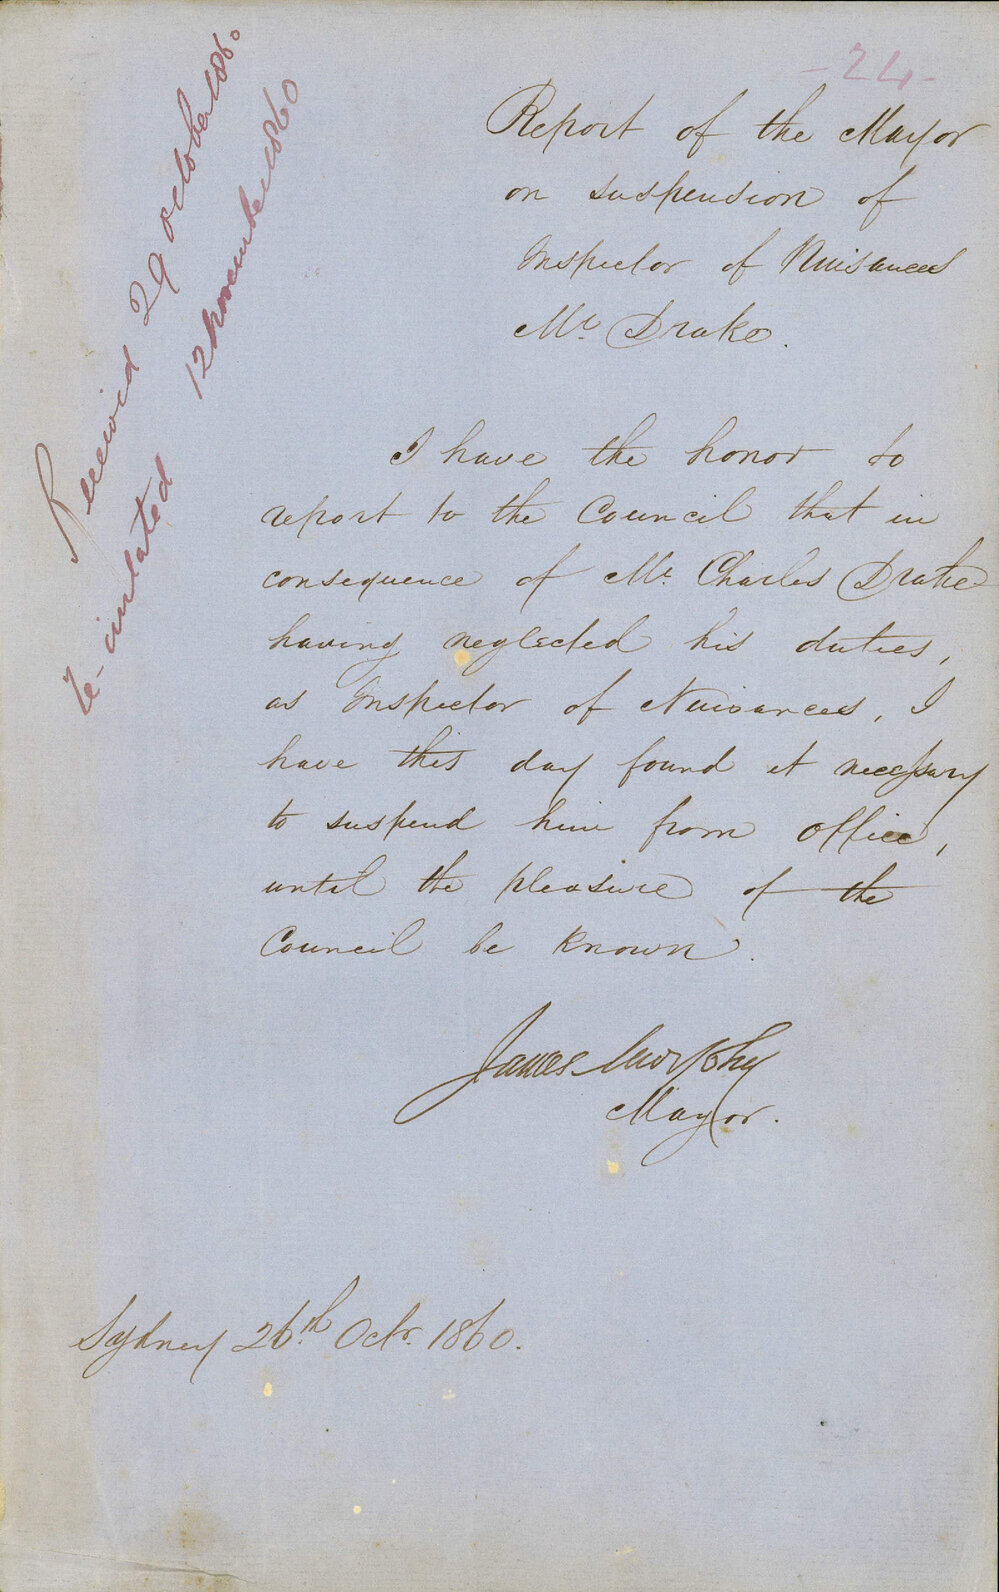 - 24 -
Received 29 October 1860
Re-instated 12 November 1860
Report of the Mayor
on suspension of
Inspector of Nuisances
Mr. Drake.
I have the honor to
report to the Council that in
consequence of Mr. Charles Drake
having neglected his duties,
as Inspector of Nuisances, I
have this day found it necessary
to suspend him from office,
until the pleasure of the
Council be known.
James Murphy
Mayor.
Sydney 26th Octr. 1860.